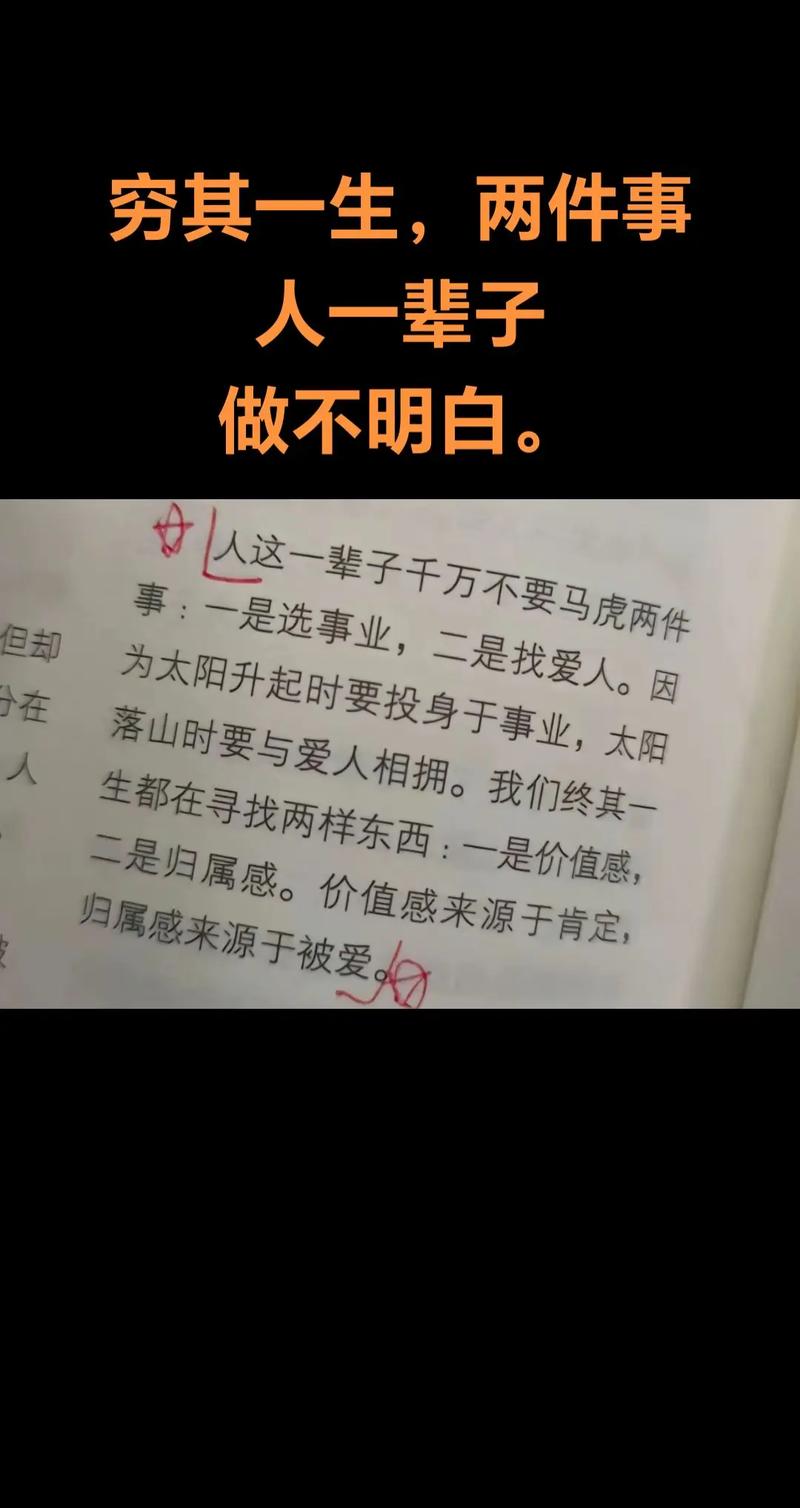 穷其一生，两件事
人一辈子
做不明白。
人这一辈子千万不要马虎两件
事：一是选事业，二是找爱人。因
为太阳升起时要投身于事业，太阳
落山时要与爱人相拥。我们终其一
生都在寻找两样东西：一是价值感，
二是归属感。价值感来源于肯定，
归属感来源于被爱。
但却
分在
人